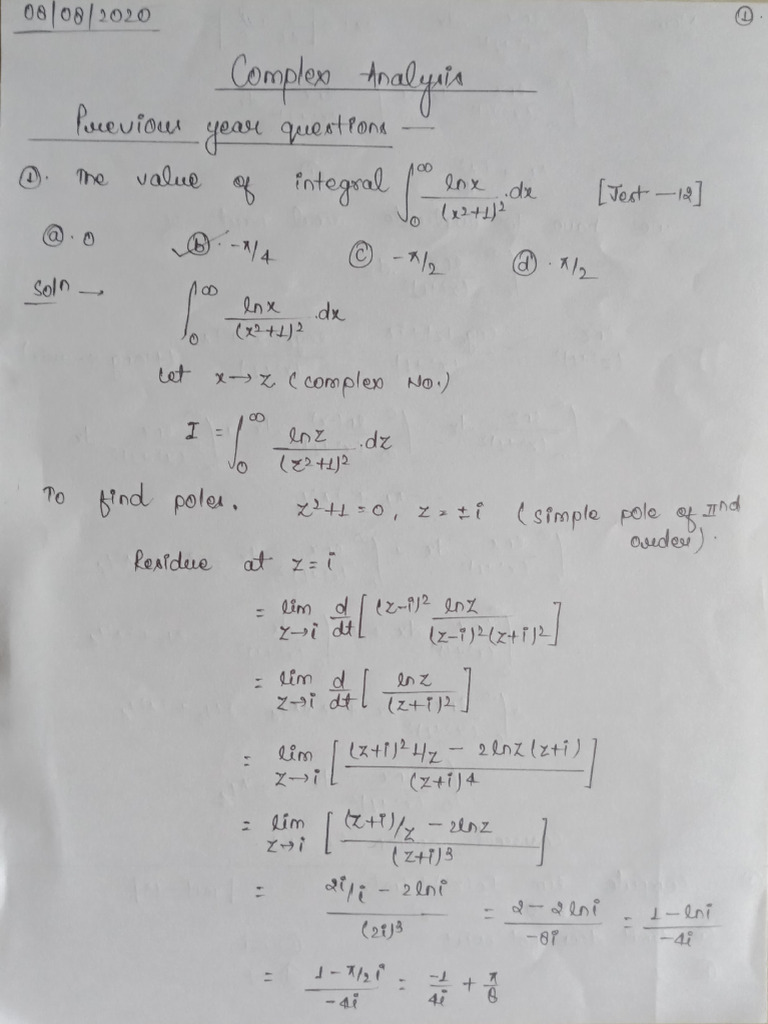 08/08/2020
①.
Complex Analysis
Previous year questions —
①. The value of integral ∫₀^∞ lnx/(x²+1)² .dx [Jest —12]
ⓐ. 0 ✓ⓑ. -π/4 ⓒ -π/2 ⓓ. π/2
Solⁿ → ∫₀^∞ lnx/(x²+1)² .dx
Let x→z (complex No.)
I = ∫₀^∞ lnz/(z²+1)² .dz
To find poles. z²+1=0, z = ±i (simple pole of IInd order).
Residue at z=i
= lim z→i d/dt [ (z-i)² lnz / (z-i)²(z+i)² ]
= lim z→i d/dt [ lnz / (z+i)² ]
= lim z→i [ ((z+i)² 1/z - 2lnz(z+i)) / (z+i)4 ]
= lim z→i [ ((z+i)/z - 2lnz) / (z+i)3 ]
= (2i/i - 2lni) / (2i)3 = (2 - 2lni) / -8i = (1 - lni) / -4i
= (1 - π/2 i) / -4i = -1/4i + π/8